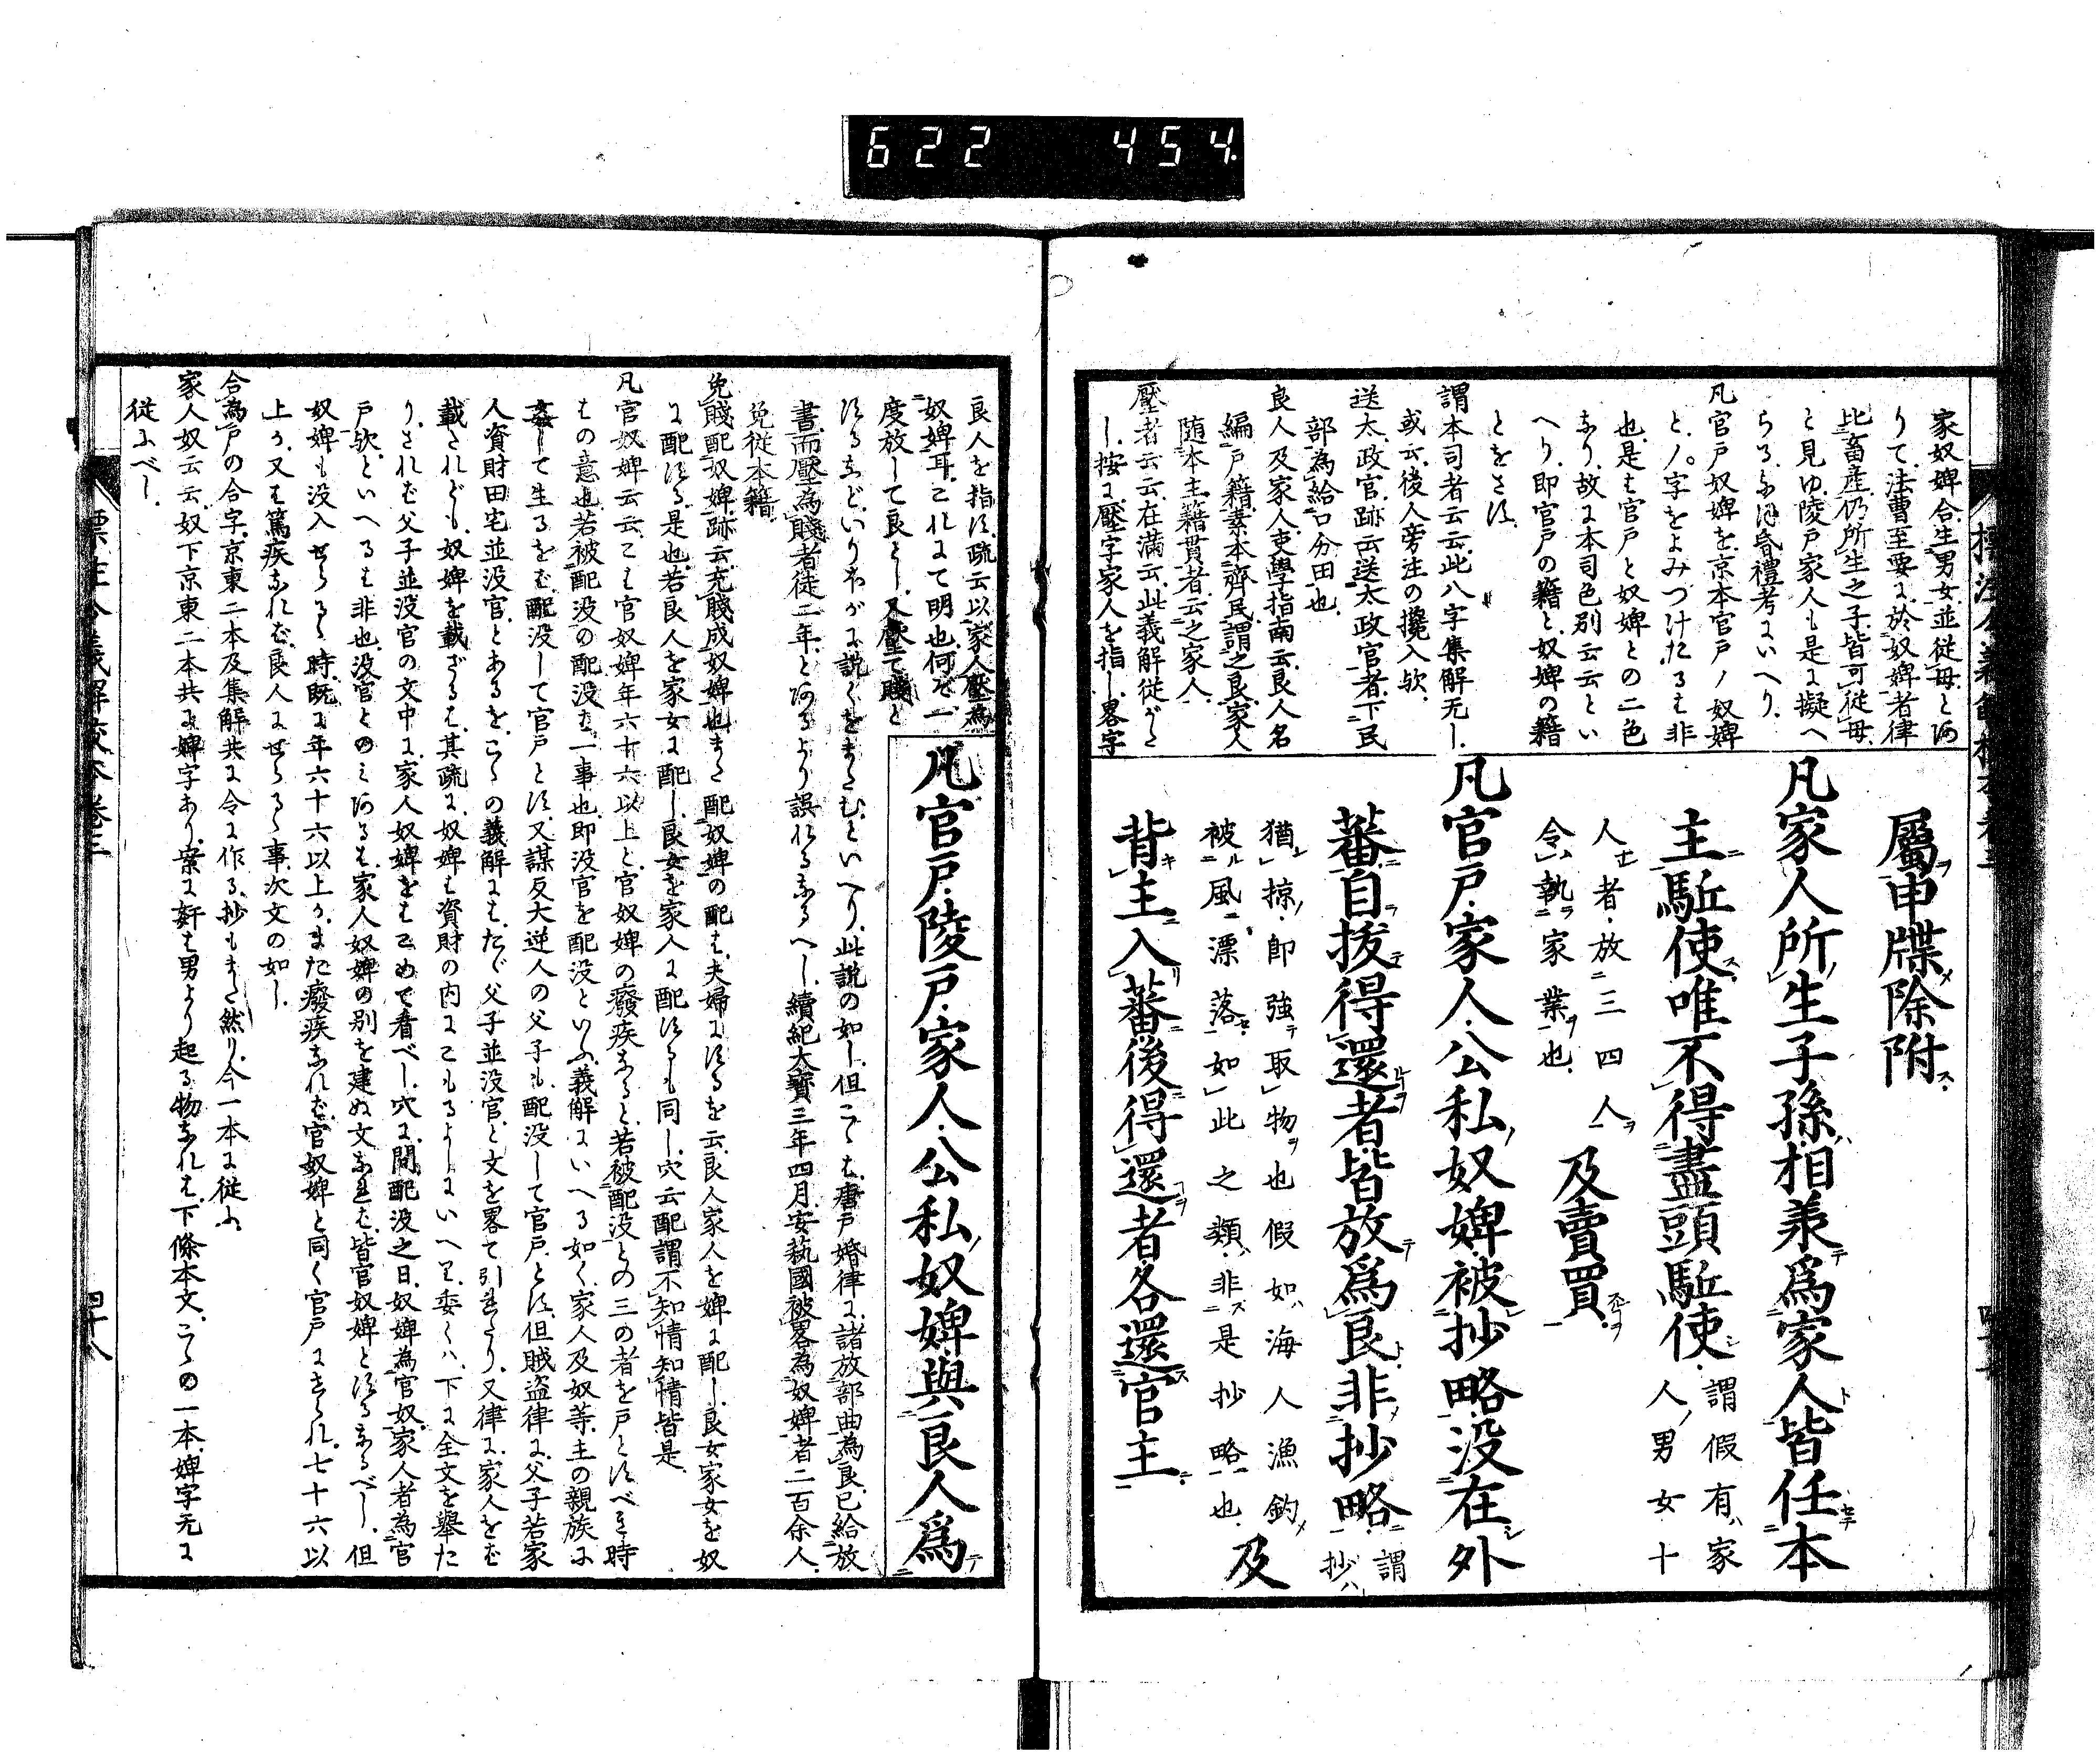 622 454
家奴婢合生男女並從母とあ
りて、法曹至要に、於奴婢者律
比畜産、仍所生之子、皆可從母、
と見ゆ、陵戸家人も是に擬へ
らる、
凡官戸奴婢を、京本官戸ノ奴婢
と、ノ字をよみつけたるは非
也、是は官戸と奴婢との二色
なり、故に本司色別云云とい
へり、即官戸の籍と、奴婢の籍
とをさす、
謂本司者云云、此八字集解无し、
或云、後人旁注の攙入欤、
送太政官、跡云送太政官者、下民
部、為給口分田也、
良人及家人、吏學指南云、良人名
編戸籍、素本齊民、謂之良、家人
随本主籍貫者、云之家人、
壓者云云、在滿云、此義解從がた
し、按に、壓字家人を指し、畧字
屬申牒除附
凡家人所生子孫、相承爲家人、皆任本
主駈使、唯不得盡頭駈使、謂假有家
人男女十
人者、放三四人
令執家業也、及賣買
凡官戸家人公私奴婢、被抄略没在外
蕃、自拔得還者、皆放爲良、非抄略謂
抄
猶掠、即強取物也、假如海人漁釣
被風漂落如此之類、非是抄略也、及
背主入蕃、後得還者、各還官主
良人を指す、疏云、以家人壓為
奴婢耳、これにて明也、何を、一
度放して良とし、又壓て賤と
凡官戸陵戸家人公私奴婢、與良人爲
するなど、いりほがに説くをまたむ、といへり、此説の如し、但こゝは、唐戸婚律に、諸放部曲為良、已給放
書、而壓為賤者、徒二年、とあるより誤れるなるへし、續紀大寶三年四月、安藝國被畧為奴婢者二百余人、
免從本籍、
免賤配奴婢、跡云、充賤成奴婢也、また配奴婢の配は、夫婦にするを云、良人家人を婢に配し、良女家女を奴
に配する是也、若良人を家女に配し、良女を家人に配するも同し、穴云配謂不知情知情皆是、
凡官奴婢云云、こは官奴婢年六十六以上と、官奴婢の癈疾なると、若被配没との三の者を戸とすべき時
はの意也、若被配没の配没は一事也、即没官を配没といふ、義解にいへる如く、家人及奴等、主の親族に
姦して生るをは、配没して官戸とす、又謀反大逆人の父子も、配没して官戸とす、但賊盗律に、父子若家
人資財田宅並没官、とあるを、こゝの義解には、たゞ父子並没官と文を畧て引たり、又律に、家人をは
載されども、奴婢を載ざるは、其疏に、奴婢は資財の内にこもるよしにいへり、委くハ、下に全文を舉た
り、されは父子並没官の文中に、家人奴婢をはこめて看べし、穴に、問配没之日、奴婢為官奴、家人者為官
戸欤、といへるは非也、没官とのみあるは、家人奴婢の別を建ぬ文なれは、皆官奴婢とするなるべし、但
奴婢も没入せらるゝ時、既に年六十六以上か、また癈疾なれは、官奴婢と同く官戸にせられ、七十六以
上か、又は篤疾なれは、良人にせらるゝ事、次文の如し、
合為戸の合字、京東二本及集解共に令に作る、抄もまた然り、今一本に從ふ、
家人奴云云、奴下京東二本共に婢字あり、案に姧は男より起る物なれは、下條本文、こゝの一本、婢字无に
從ふべし、
標注令義解校本卷三 四十八